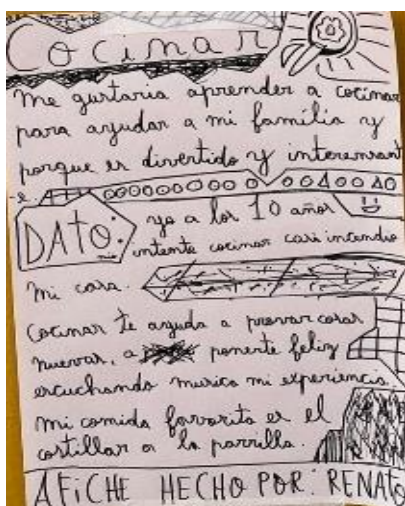 Cocinar
me gustaria aprender a cocinar
para ayudar a mi família y
porque es divertido y interesant
-e.
DATO: yo a los 10 años
intente cocinar casi incendio
mi casa.
Cocinar te ayuda a provar cosas
nuevas, a ponerte feliz
escuchando musica mi experiencia.
mi comida favorita es el
costillar a la parrilla.
AFiCHE HECHO POR: RENATO